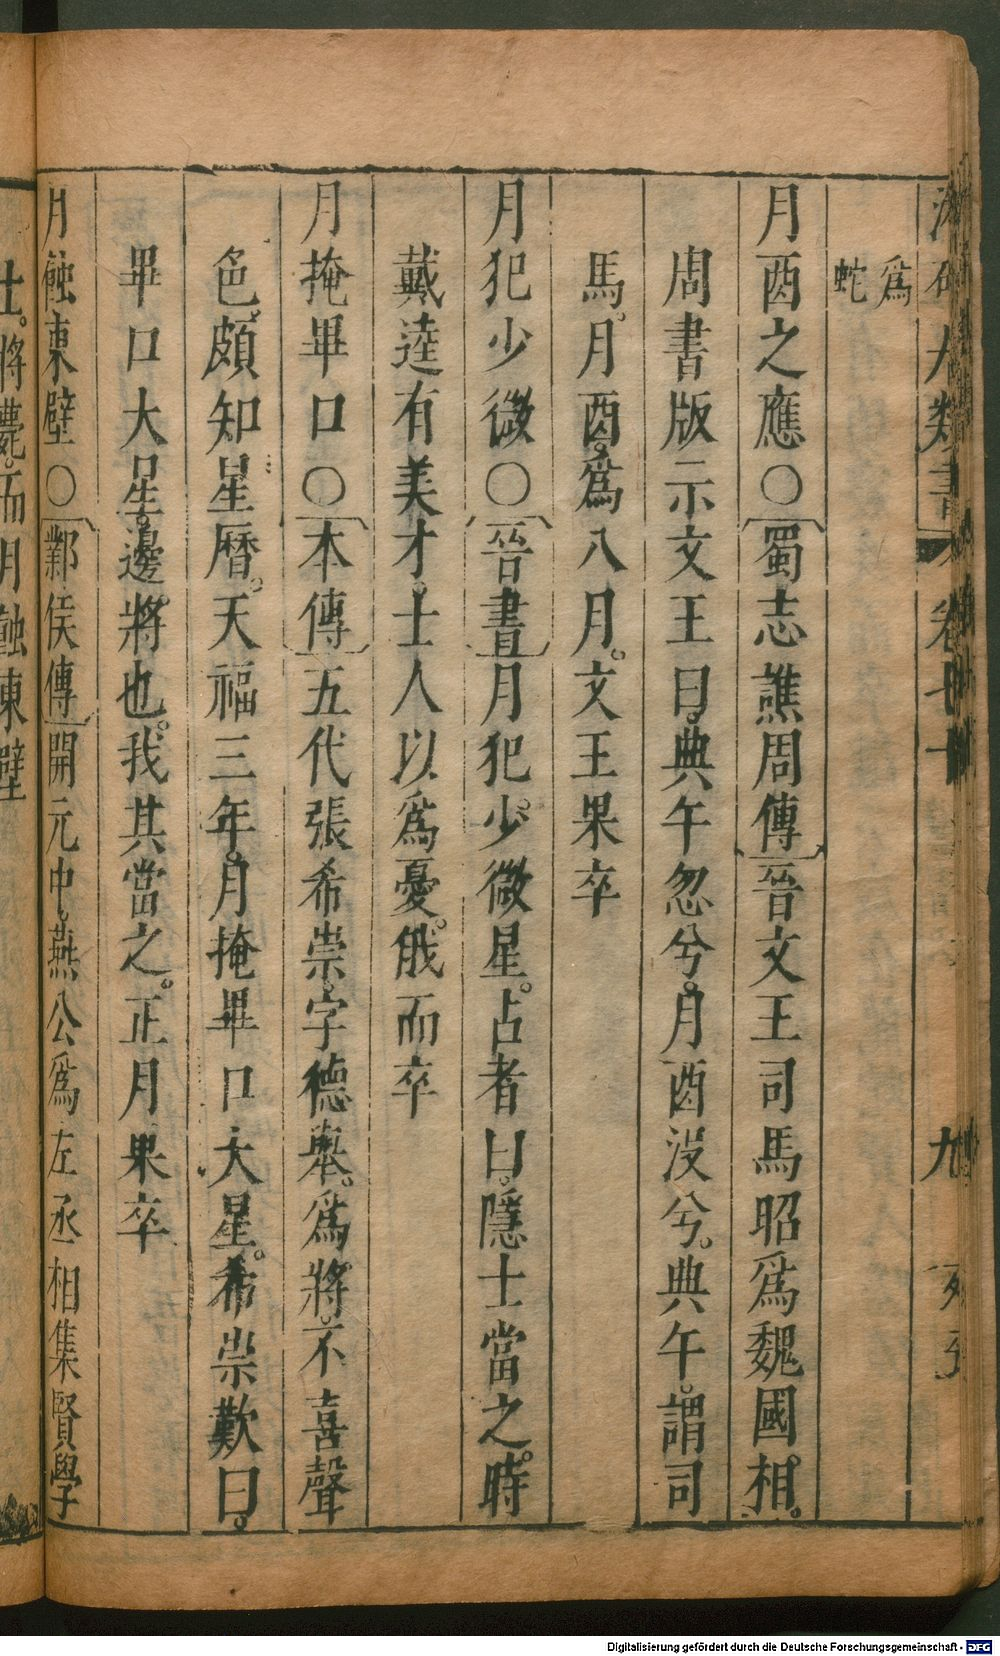 爲
蛇
月酉之應〇蜀志譙周傳晉文王司馬昭爲魏國相。
周書版示文王曰。典午忽兮。月酉没兮。典午。謂司
馬。月酉。爲八月。文王果卒
月犯少微〇晉書月犯少微星。占者曰。隱士當之。時
戴逵有美才。士人以爲憂。俄而卒
月掩畢口〇本傳五代張希崇。字德舉。爲將。不喜聲
色。頗知星曆。天福三年。月掩畢口大星。希崇歎曰。
畢口大星。邊將也。我其當之。正月果卒
月蝕東壁〇鄴侯傳開元中。燕公爲左丞相集賢學
士。將薨。而月蝕東壁
Digitalisierung gefördert durch die Deutsche Forschungsgemeinschaft - DFG